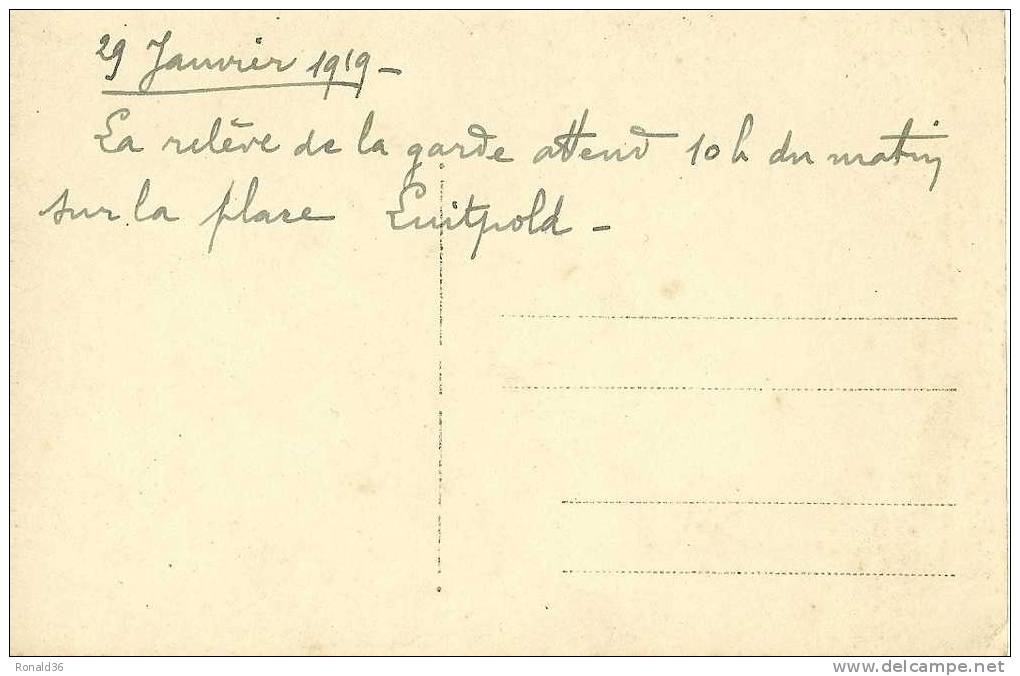 29 Janvier 1919 -
La relève de la garde attend 10 h du matin
sur la place Luitpold -
Ronald36
www.delcampe.net